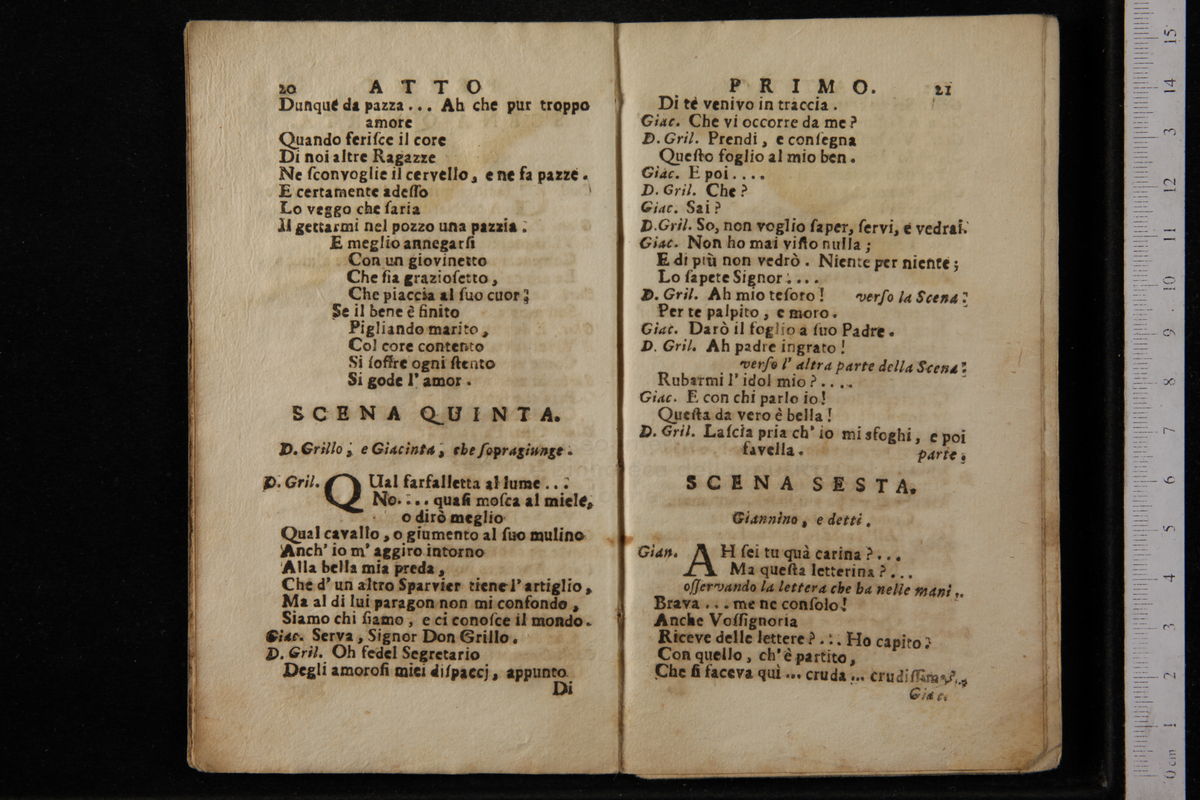 20 ATTO
Dunque da pazza... Ah che pur troppo
amore
Quando feriſce il core
Di noi altre Ragazze
Ne ſconvoglie il cervello, e ne fa pazze.
E certamente adeſſo
Lo veggo che ſaria
Il gettarmi nel pozzo una pazzia.
E meglio annegarſi
Con un giovinetto
Che ſia grazioſetto,
Che piaccia al ſuo cuor;
Se il bene è finito
Pigliando marito,
Col core contento
Si ſoffre ogni ſtento
Si gode l' amor.
SCENA QUINTA.
D. Grillo, e Giacinta, che ſopragiunge.
D. Gril. QUal farfalletta al lume...
No.... quaſi moſca al miele,
o dirò meglio
Qual cavallo, o giumento al ſuo mulino
Anch' io m' aggiro intorno
Alla bella mia preda,
Che d' un altro Sparvier tiene l' artiglio,
Ma al di lui paragon non mi confondo,
Siamo chi ſiamo, e ci conoſce il mondo.
Giac. Serva, Signor Don Grillo.
D. Gril. Oh fedel Segretario
Degli amoroſi miei diſpaccj, appunto
Di
PRIMO. 21
Di te venivo in traccia.
Giac. Che vi occorre da me?
D. Gril. Prendi, e conſegna
Queſto foglio al mio ben.
Giac. E poi....
D. Gril. Che?
Giac. Sai?
D. Gril. So, non voglio ſaper, ſervi, e vedrai.
Giac. Non ho mai viſto nulla;
E di più non vedrò. Niente per niente;
Lo ſapete Signor....
D. Gril. Ah mio teſoro! verſo la Scena.
Per te palpito, e moro.
Giac. Darò il foglio a ſuo Padre.
D. Gril. Ah padre ingrato!
verſo l' altra parte della Scena.
Rubarmi l' idol mio?....
Giac. E con chi parlo io!
Queſta da vero è bella!
D. Gril. Laſcia pria ch' io mi sfoghi, e poi
favella. parte.
SCENA SESTA.
Giannino, e detti.
Gian. AH ſei tu quà carina?...
Ma queſta letterina?...
oſſervando la lettera che ha nelle mani..
Brava... me ne conſolo!
Anche Voſſignoria
Riceve delle lettere?... Ho capito?
Con quello, ch' è partito,
Che ſi faceva quì... cruda... crudiſſima?...
Giac.
0 cm 1 2 3 4 5 6 7 8 9 10 11 12 13 14 15